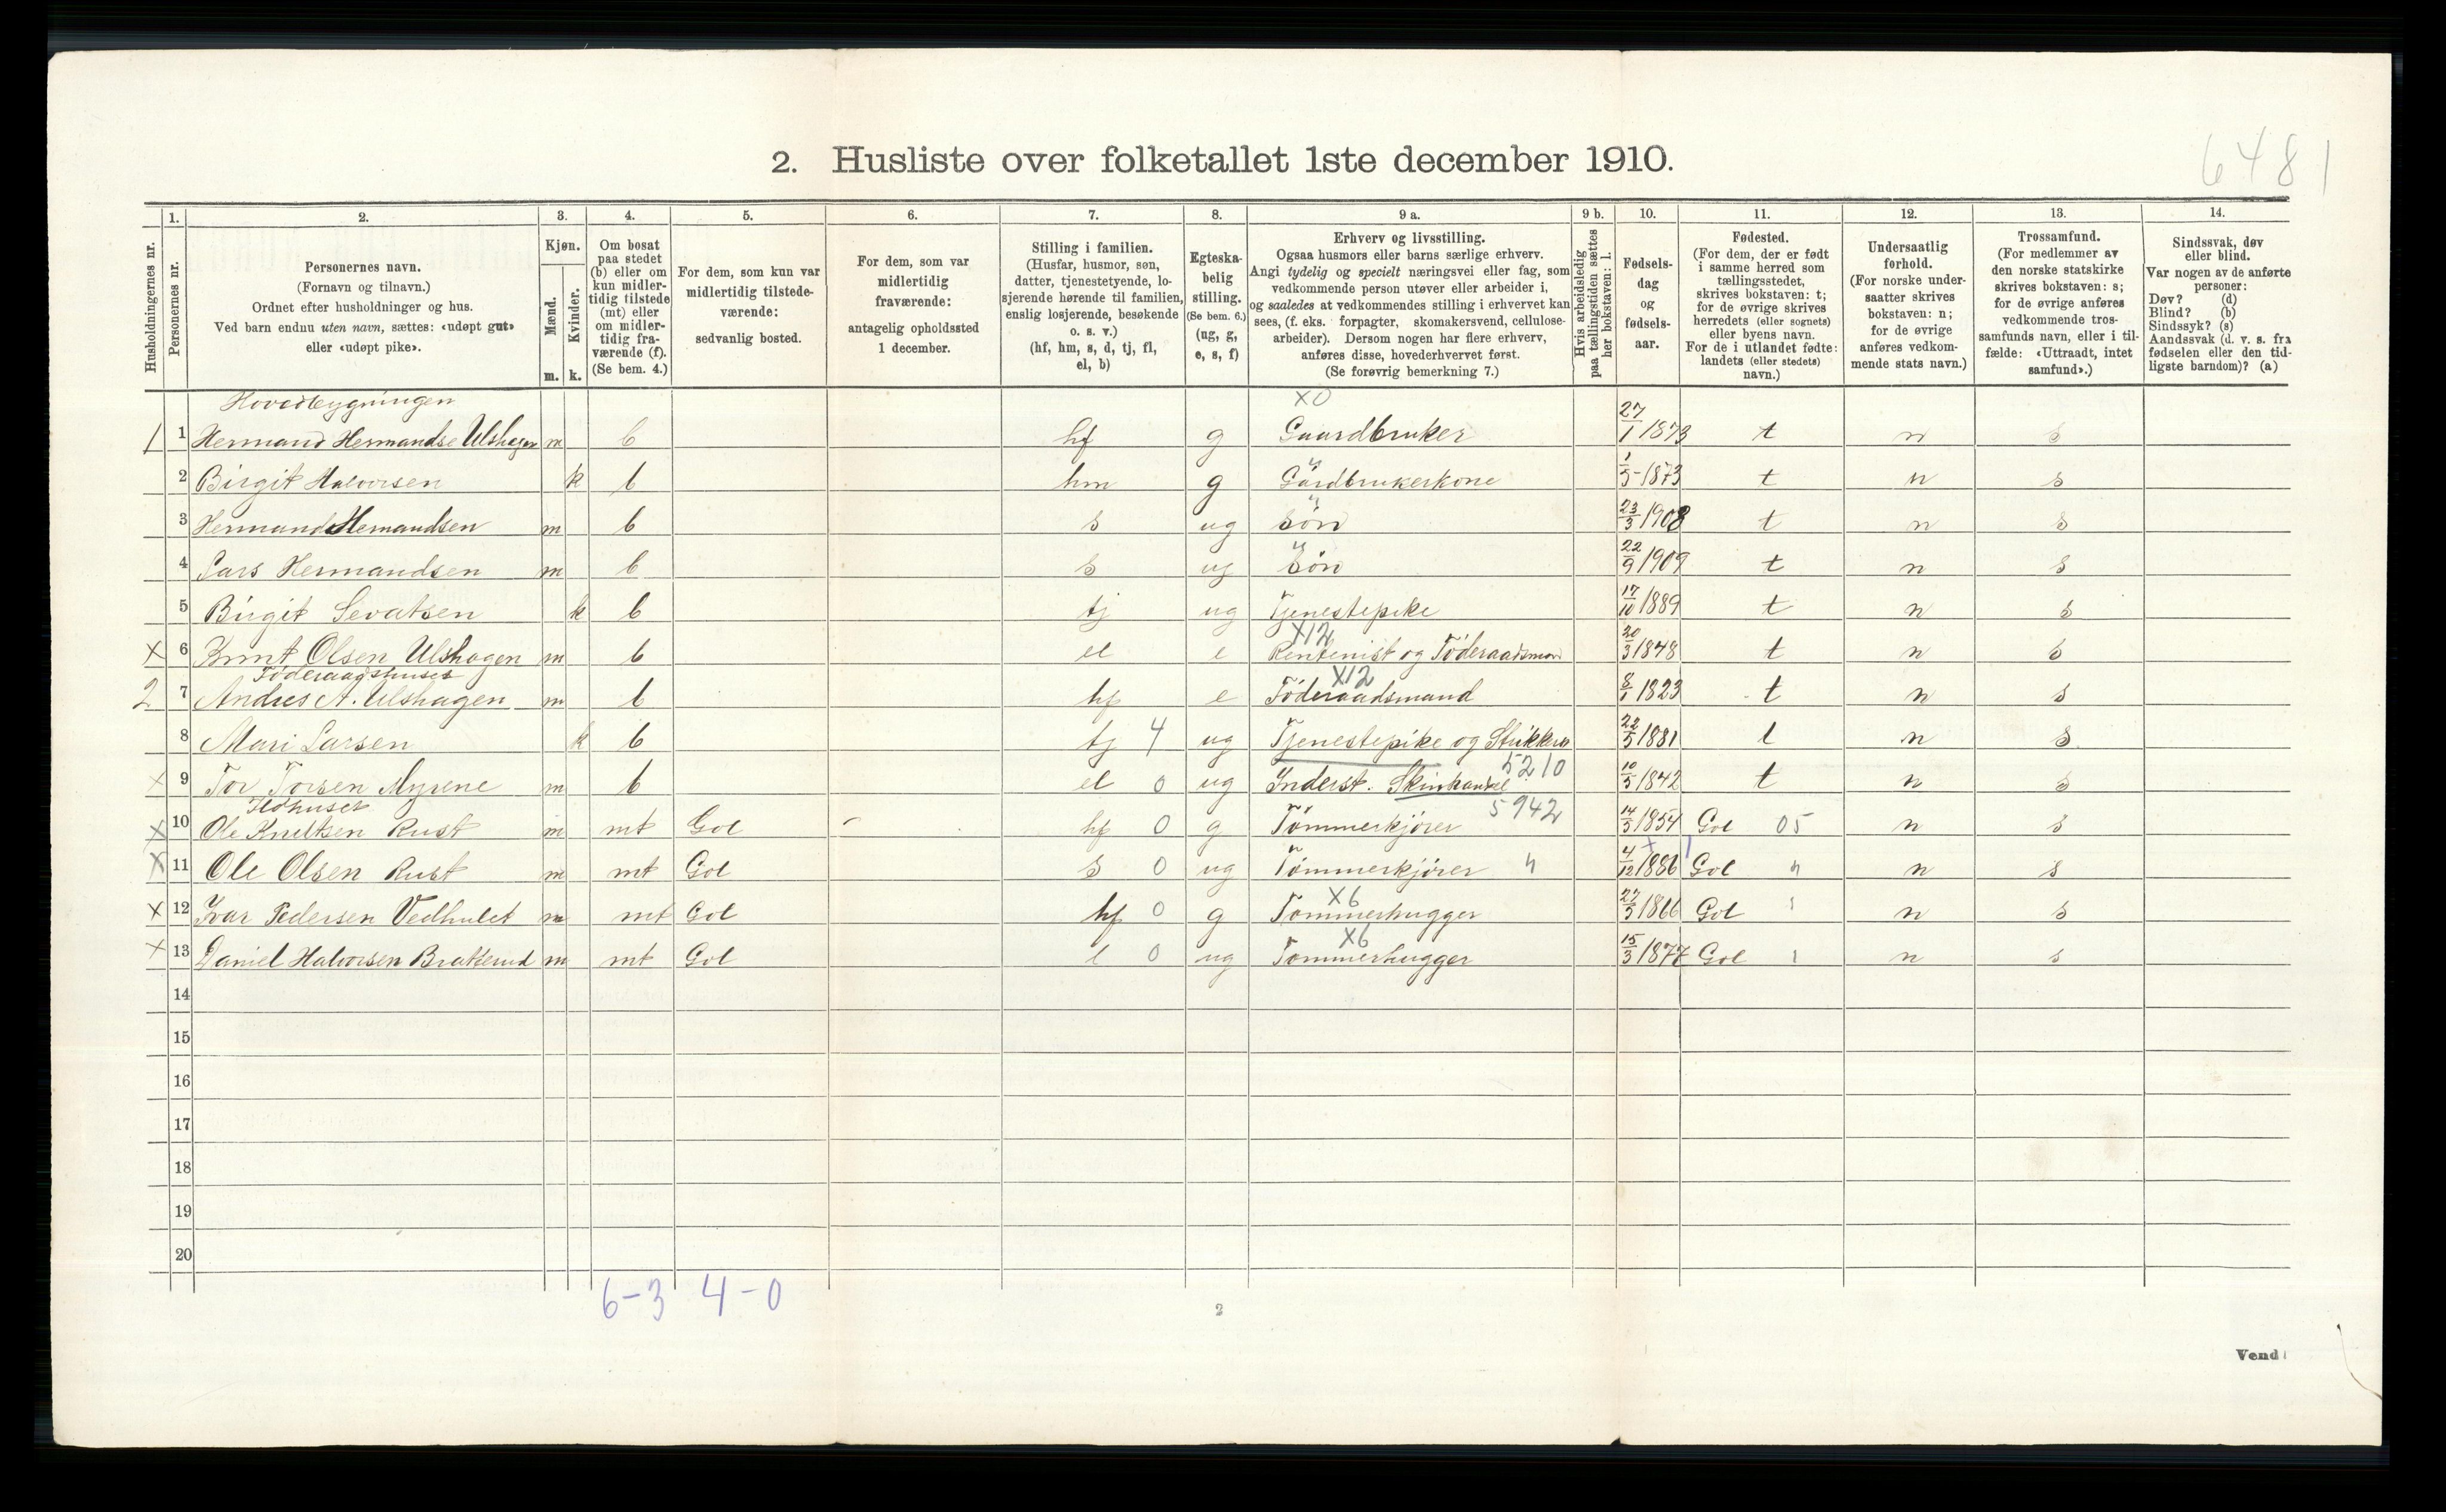 6481
2. Husliste over folketallet 1ste december 1910.
Husholdningernes nr.
1. Personernes nr.
2. Personernes navn.
(Fornavn og tilnavn.)
Ordnet efter husholdninger og hus.
Ved barn endnu uten navn, sættes: «udøpt gut»
eller «udøpt pike».
3. Kjøn.
Mænd. m.
Kvinder. k.
4. Om bosat
paa stedet
(b) eller om
kun midler-
tidig tilstede
(mt) eller
om midler-
tidig fra-
værende (f).
(Se bem. 4.)
5. For dem, som kun var
midlertidig tilstede-
værende:
sedvanlig bosted.
6. For dem, som var
midlertidig
fraværende:
antagelig opholdssted
1 december.
7. Stilling i familien.
(Husfar, husmor, søn,
datter, tjenestetyende, lo-
sjerende hørende til familien,
enslig losjerende, besøkende
o. s. v.)
(hf, hm, s, d, tj, fl,
el, b)
8. Egteska-
belig
stilling.
(Se bem. 6.)
(ug, g,
e, s, f)
9 a. Erhverv og livsstilling.
Ogsaa husmors eller barns særlige erhverv.
Angi tydelig og specielt næringsvei eller fag, som
vedkommende person utøver eller arbeider i,
og saaledes at vedkommendes stilling i erhvervet kan
sees, (f. eks. forpagter, skomakersvend, cellulose-
arbeider). Dersom nogen har flere erhverv,
anføres disse, hovederhvervet først.
(Se forøvrig bemerkning 7.)
9 b. Hvis arbeidsledig
paa tællingstiden sættes
her bokstaven: l.
10. Fødsels-
dag
og
fødsels-
aar.
11. Fødested.
(For dem, der er født
i samme herred som
tællingsstedet,
skrives bokstaven: t;
for de øvrige skrives
herredets (eller sognets)
eller byens navn.
For de i utlandet fødte:
landets (eller stedets)
navn.)
12. Undersaatlig
forhold.
(For norske under-
saatter skrives
bokstaven: n;
for de øvrige
anføres vedkom-
mende stats navn.)
13. Trossamfund.
(For medlemmer av
den norske statskirke
skrives bokstaven: s;
for de øvrige anføres
vedkommende tros-
samfunds navn, eller i til-
fælde: «Uttraadt, intet
samfund».)
14. Sindssvak, døv
eller blind.
Var nogen av de anførte
personer:
Døv? (d)
Blind? (b)
Sindssyk? (s)
Aandssvak (d. v. s. fra
fødselen eller den tid-
ligste barndom)? (a)
Hovedbygningen X0
1 1 Hermand Hermandse Ulshagen m b hf g Gaardbruker 27/1 1873 t n s
2 Birgit Halvorsen k b hm g Gårdbrukerkone 1/5-1873 t n s
3 Hermand Hemandsen m b s ug Sön 23/3 1908 t n s
4 Lars Hermandsen m b s ug Sön 22/9 1909 t n s
5 Birgit Sevatsen k b tj ug Tjenestepike 17/10 1889 t n s
X12
X 6 Knut Olsen Ulshagen m b el e Rentenist og Föderaadsman 20/3 1848 t n s
Föderaadshuset X12
2 7 Andres A. Ulshagen m b hf e Föderaadsmand 8/1 1823 t n s
8 Mari Larsen k b tj 4 ug Tjenestepike og Strikker 22/5 1881 t n s
5210
X 9 Tor Torsen Myrene m b el 0 ug Inderst. Skinhandel 10/5 1842 t n s
Ildhuset 5942
X 10 Ole Knutsen Rust m mt Gol hf 0 g Tömmerkjörer 14/5 1854 Gol 05 n s
X 11 Ole Olsen Rust m mt Gol s 0 ug Tömmerkjörer " 4/12 1886 Gol " n s
X6
X 12 Ivar Pedersen Vedhulet m mt Gol hf 0 g Tømmerhugger 27/5 1866 Gol " n s
X6
X 13 Daniel Halvorsen Bratterud m mt Gol l 0 ug Tømmerhugger 15/3 1877 Gol " n s
14
15
16
17
18
19
20
6-3 4-0
2
Vend